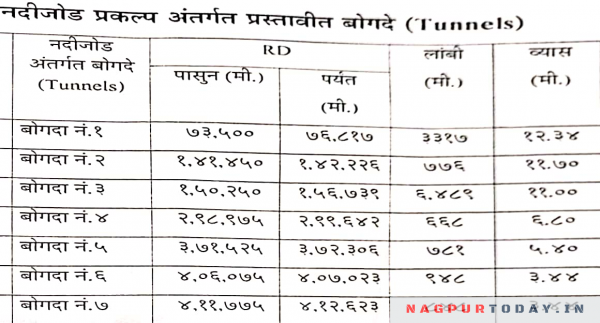 नदीजोड प्रकल्प अंतर्गत प्रस्तावीत बोगदे (Tunnels)
नदीजोड अंतर्गत बोगदे (Tunnels) RD लांबी (मी.) व्यास (मी.)
पासुन (मी.) पर्यत (मी.)
बोगदा नं.१ ७३.५०० ७६.८१७ ३३१७ १२.३४
बोगदा नं.२ १.४१.४५० १.४२.२२६ ७७६ ११.७०
बोगदा नं.३ १.५०.२५० १.५६.७३९ ६.४८९ ११.००
बोगदा नं.४ २.९८.९७५ २.९९.६४२ ६६८ ६.८०
बोगदा नं.५ ३.७१.५२५ ३.७२.३०६ ७८१ ५.४०
बोगदा नं.६ ४.०६.०७५ ४.०७.०२३ ९४८ ३.४४
बोगदा नं.७ ४.११.७७५ ४.१२.६२३
NAGPURTODAY.IN